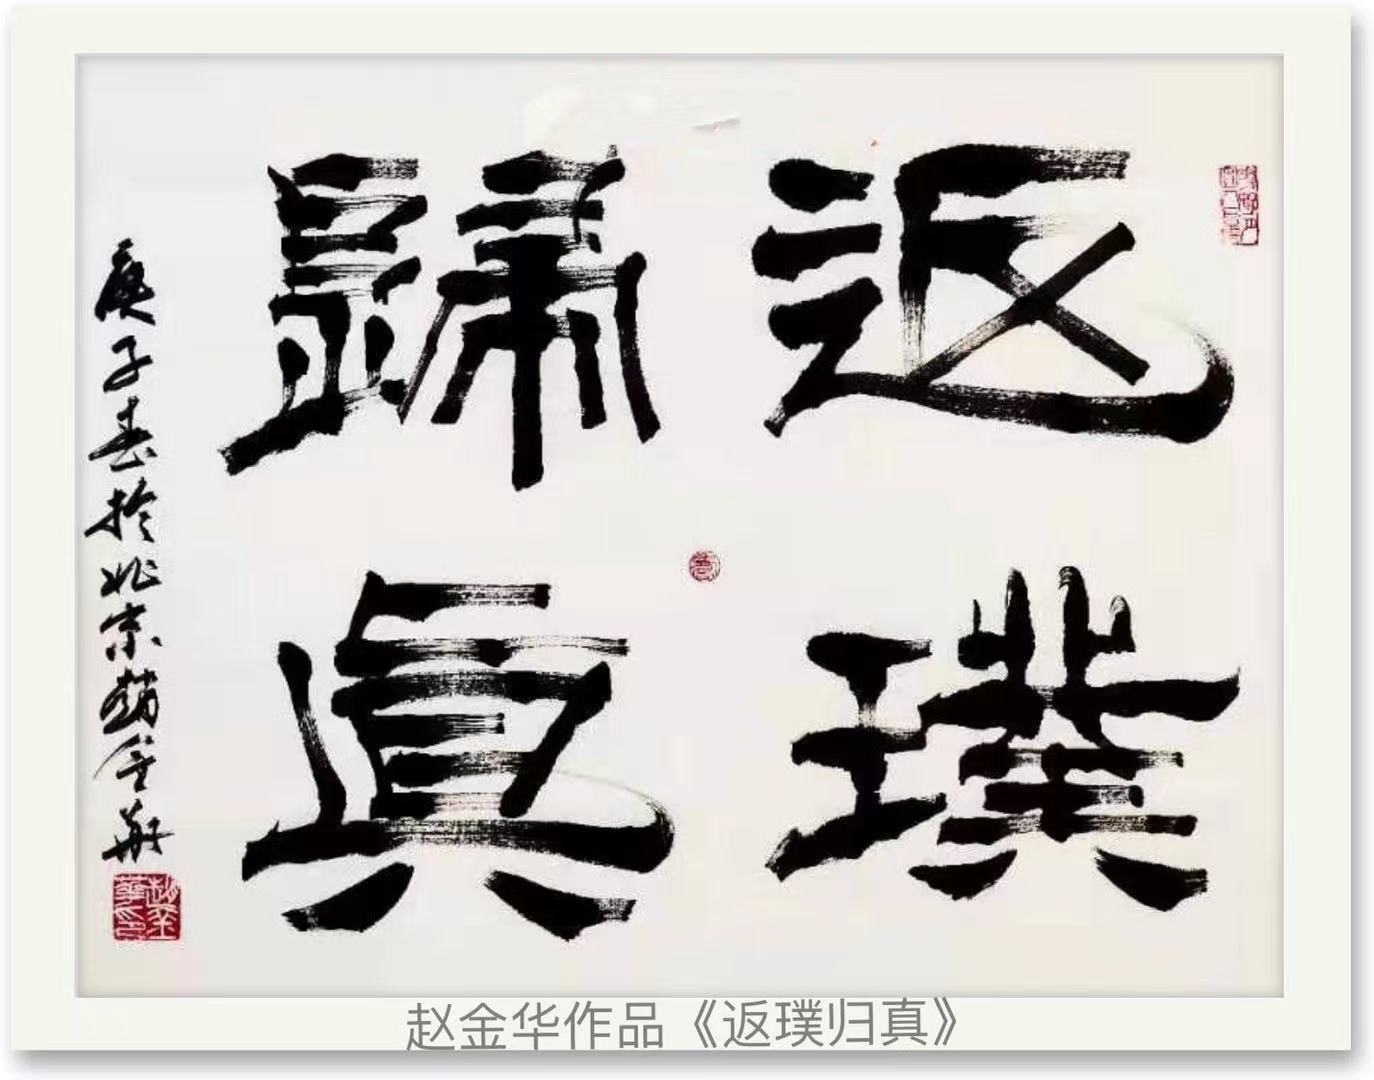 返璞
歸真
庚子春於北京趙金華
趙金華印
赵金华作品《返璞归真》